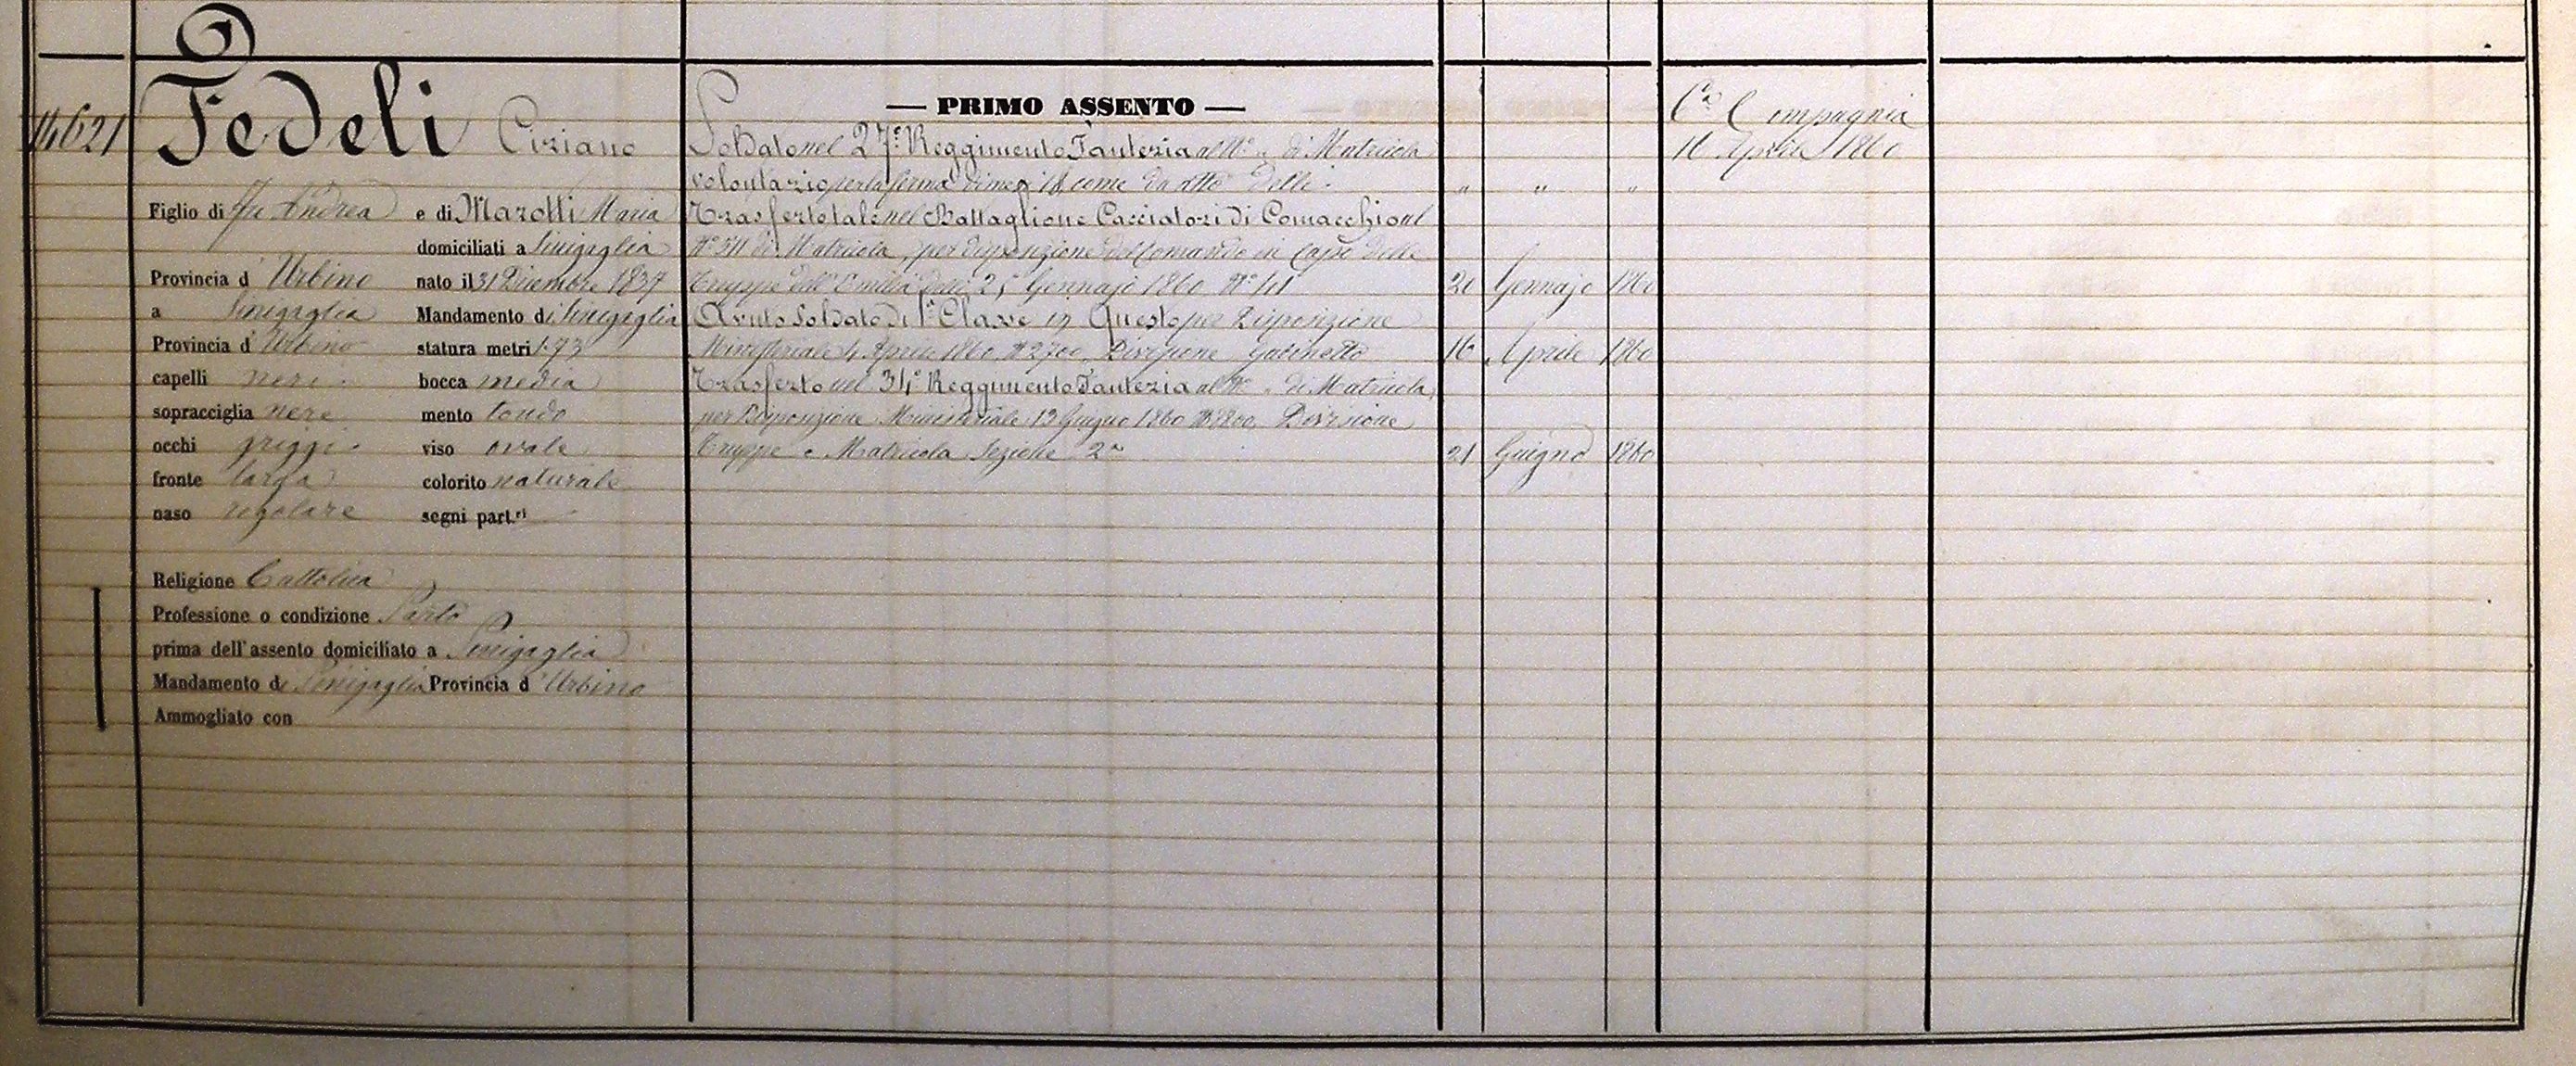 14621
Fedeli Ciriaco
Figlio di fu Andrea e di Marotti Maria
domiciliati a Sinigaglia
Provincia d' Urbino nato il 31 Dicembre 1837
a Sinigaglia Mandamento di Sinigaglia
Provincia d' Urbino statura metri 1.73
capelli neri bocca media
sopracciglia nere mento tondo
occhi griggi viso ovale
fronte larga colorito naturale
naso regolare segni part.ri
Religione Cattolica
Professione o condizione Sarto
prima dell'assento domiciliato a Sinigaglia
Mandamento di Sinigaglia Provincia d' Urbino
Ammogliato con
— PRIMO ASSENTO —
Soldato nel 27.° Reggimento Fanteria al N.° " di Matricola
volontario per la ferma di mesi 18 come da atto delli " " "
Trasferto tale nel Battaglione Cacciatori di Comacchio al
di Matricola, per disposizione del Comando in Capo delle
Truppe dell'Emilia delli Gennajo 1860 Gennajo 1860
Avuto Soldato di 1.a Classe in Questo per Disposizione
Ministeriale 4 Aprile 1860 N 2700 Divisione Gabinetto 16 Aprile 1860
Trasferto nel 34° Reggimento Fanteria al N.° " di Matricola,
per Disposizione Ministeriale 13 Giugno 1860 Divisione
Truppe e Matricola Sezione 2a 21 Giugno 1860
Compagnia
16 Aprile 1860